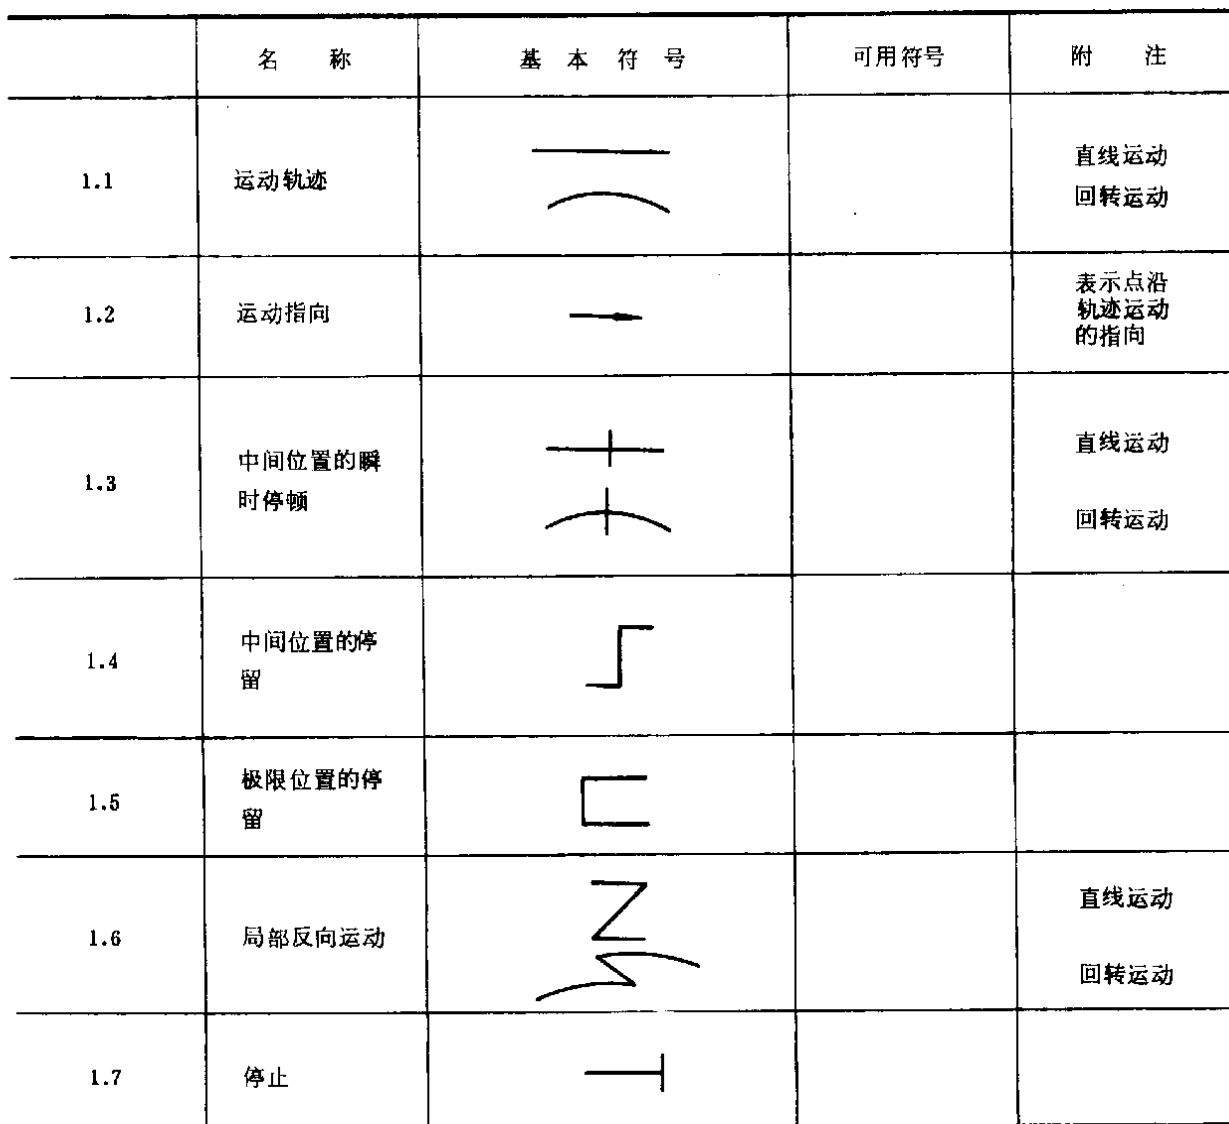 名 称 基 本 符 号 可用符号 附 注
1.1 运动轨迹 直线运动
回转运动
1.2 运动指向 表示点沿
轨迹运动
的指向
1.3 中间位置的瞬
时停顿
直线运动
回转运动
1.4 中间位置的停
留
1.5 极限位置的停
留
1.6 局部反向运动 直线运动
回转运动
1.7 停止